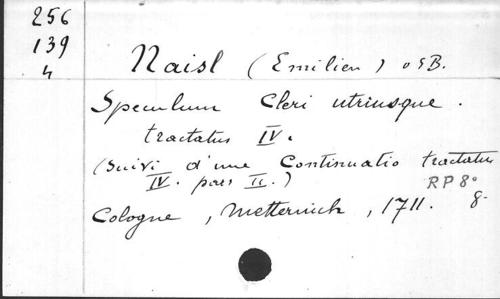 256
139
4
Naisl (Emilien) OSB.
Speculum Cleri utriusque.
tractatus IV.
(Suivi d'une Continuatio tractatus
IV. pars II.)
RP 8°
Cologne, Metternich, 1711. 8.